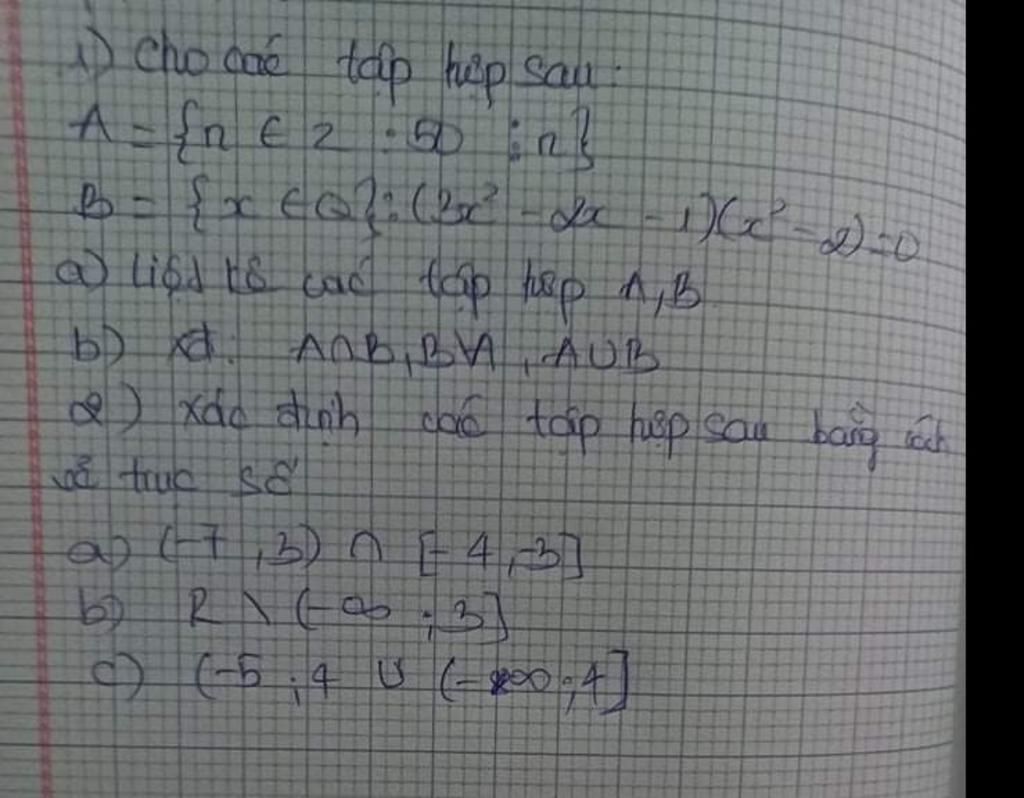 1) Cho các tập hợp sau:
A = {n ∈ Z : 50 ⋮ n}
B = {x ∈ Q} : (3x² - 2x - 1)(x² - 2) = 0
a) Liệt kê các tập hợp A, B
b) xđ: A∩B, B\A, A∪B
2) xác định các tập hợp sau bằng cách
vẽ trục số
a) (-7, 3) ∩ [-4, -3]
b) R \ (-∞ ; 3]
c) (-5 ; 4 ∪ (-∞ ; 4]